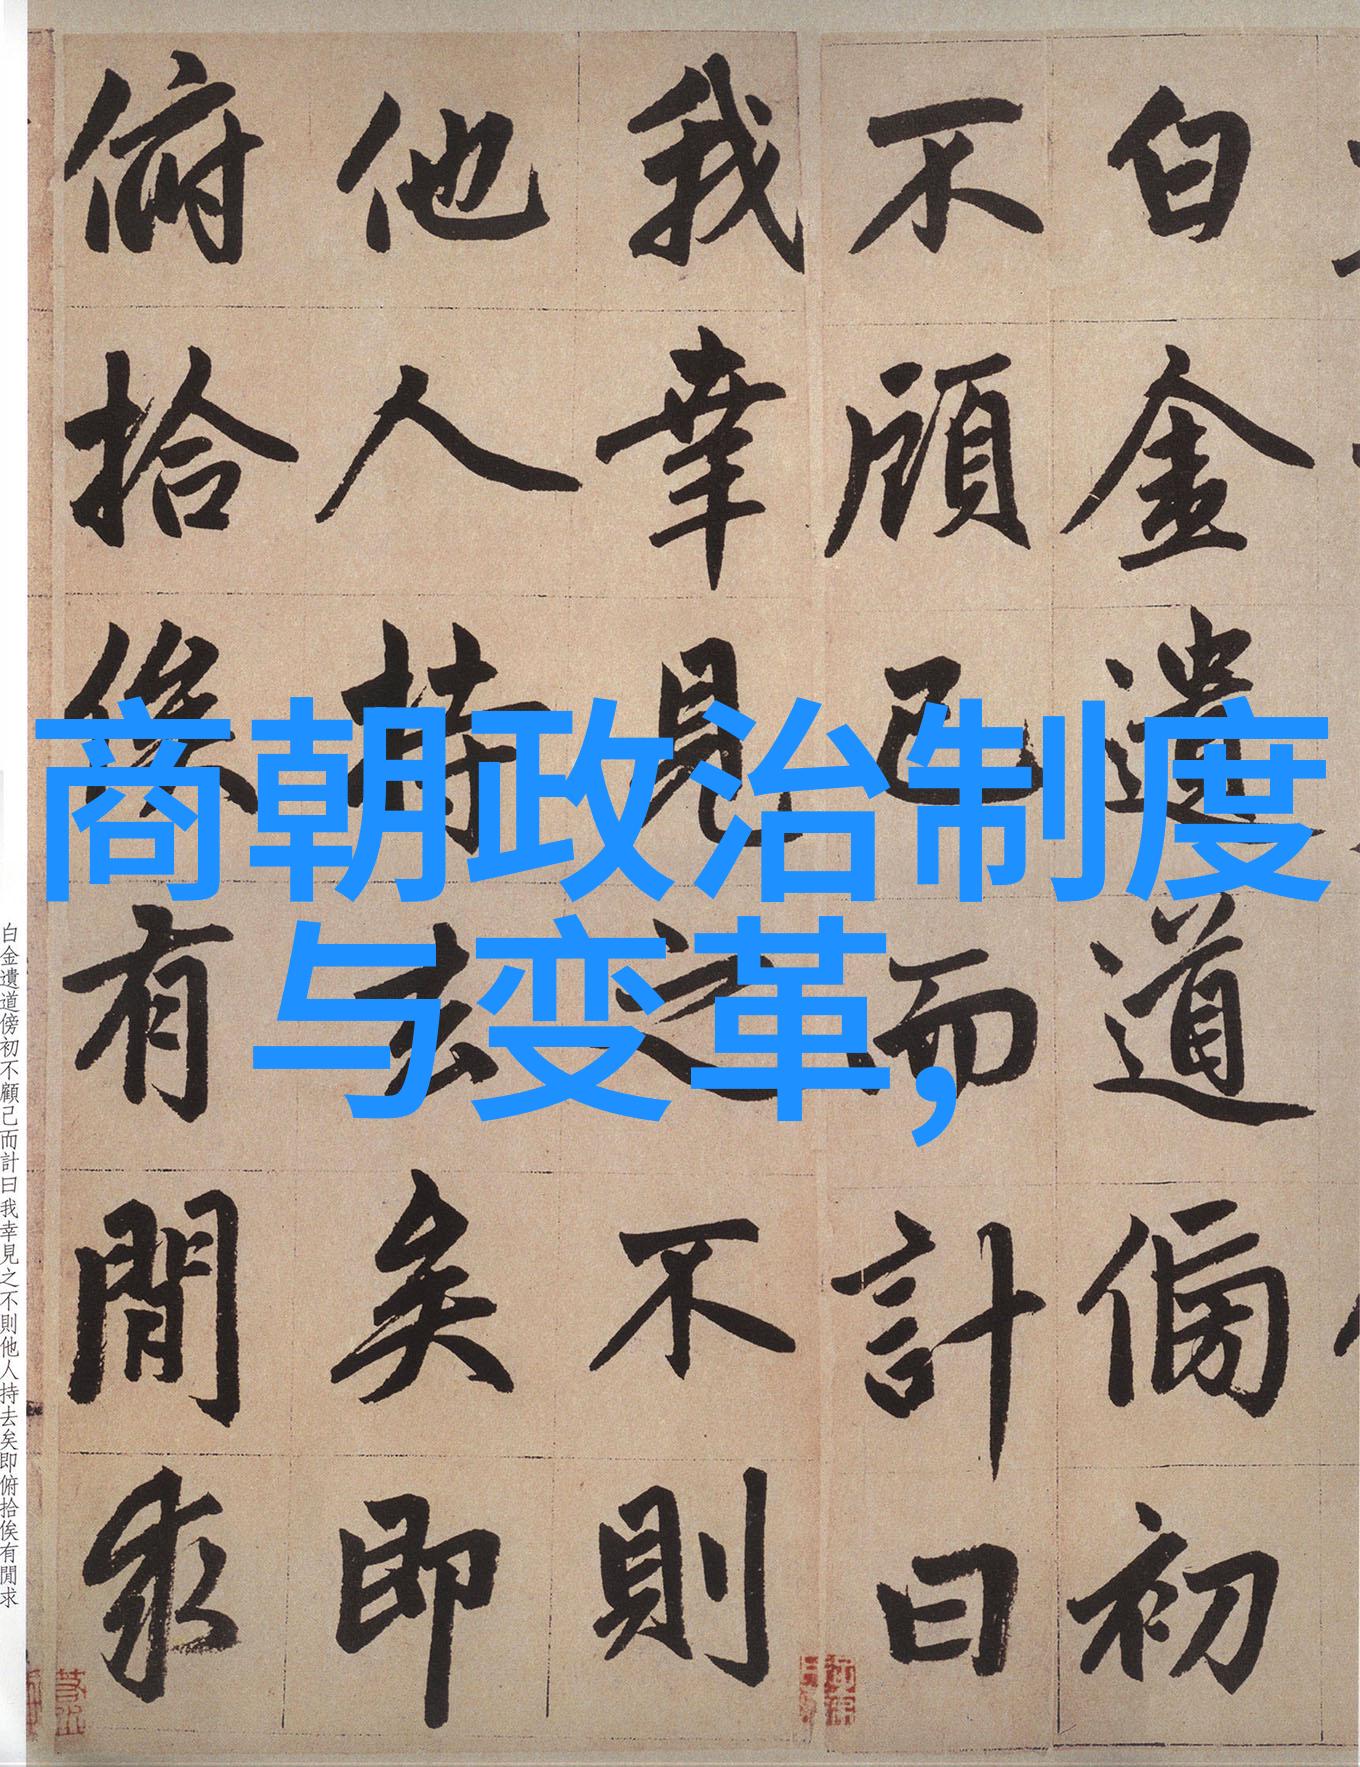 商朝政治制度
与变革,
白金遺道傍初
不顧己而計曰
我幸見之不則
他人持去矣即
俯拾俟有閒求
白金遺道傍初不顧己而計曰我幸見之不則他人持去矣即俯拾俟有閒求